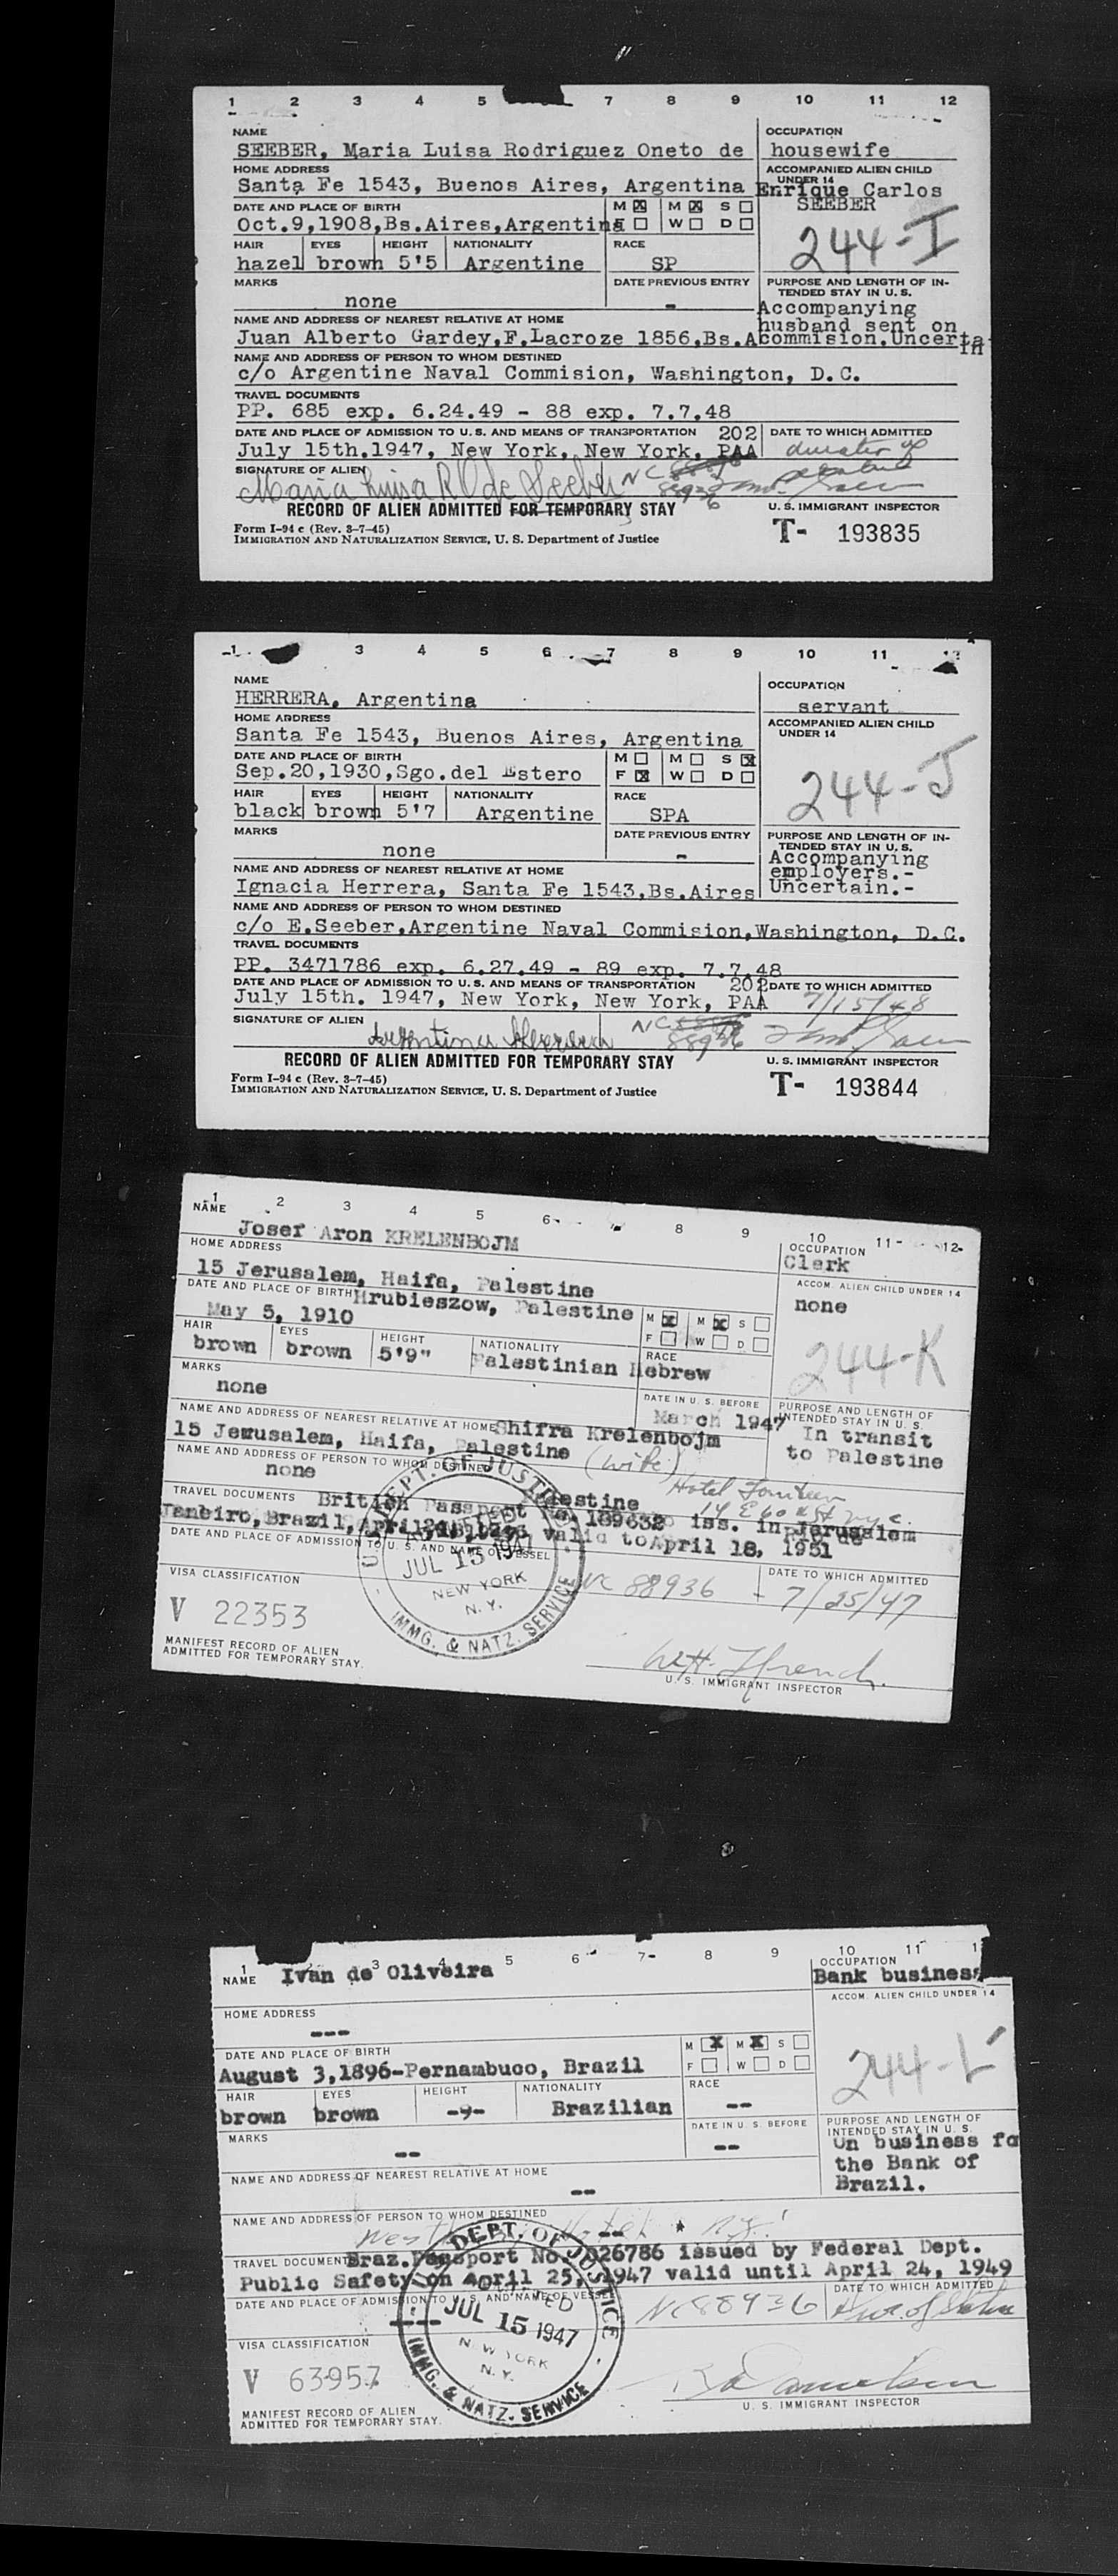 1 2 3 4 5 7 8 9 10 11 12
NAME OCCUPATION
SEEBER, Maria Luisa Rodriguez Oneto de housewife
HOME ADDRESS ACCOMPANIED ALIEN CHILD UNDER 14
Santa Fe 1543, Buenos Aires, Argentina Enrique Carlos SEEBER
DATE AND PLACE OF BIRTH M ☒ M ☒ S ☐
Oct.9,1908,Bs.Aires,Argentina F ☐ W ☐ D ☐
244-I
HAIR EYES HEIGHT NATIONALITY RACE
hazel brown 5'5 Argentine SP
MARKS DATE PREVIOUS ENTRY PURPOSE AND LENGTH OF IN-
TENDED STAY IN U. S.
none - Accompanying
husband sent on
NAME AND ADDRESS OF NEAREST RELATIVE AT HOME
Juan Alberto Gardey,F.Lacroze 1856,Bs.A commision.Uncerta
in
NAME AND ADDRESS OF PERSON TO WHOM DESTINED
c/o Argentine Naval Commision, Washington, D.C.
TRAVEL DOCUMENTS
PP. 685 exp. 6.24.49 - 88 exp. 7.7.48
DATE AND PLACE OF ADMISSION TO U. S. AND MEANS OF TRANSPORTATION 202 DATE TO WHICH ADMITTED
July 15th.1947, New York, New York, PAA duration of
SIGNATURE OF ALIEN Maria Luisa R O de Seeber NC
88936
RECORD OF ALIEN ADMITTED FOR TEMPORARY STAY U. S. IMMIGRANT INSPECTOR
Form I-94 c (Rev. 3-7-45)
IMMIGRATION AND NATURALIZATION SERVICE, U. S. Department of Justice T- 193835
1 3 4 5 6 7 8 9 10 11 12
NAME OCCUPATION
HERRERA, Argentina servant
HOME ADDRESS ACCOMPANIED ALIEN CHILD
UNDER 14
Santa Fe 1543, Buenos Aires, Argentina
DATE AND PLACE OF BIRTH M ☐ M ☐ S ☒
Sep.20,1930,Sgo.del Estero F ☒ W ☐ D ☐
244-J
HAIR EYES HEIGHT NATIONALITY RACE
black brown 5'7 Argentine SPA
MARKS DATE PREVIOUS ENTRY PURPOSE AND LENGTH OF IN-
TENDED STAY IN U. S.
none - Accompanying
employers.-
NAME AND ADDRESS OF NEAREST RELATIVE AT HOME
Ignacia Herrera, Santa Fe 1543,Bs.Aires Uncertain.-
NAME AND ADDRESS OF PERSON TO WHOM DESTINED
c/o E.Seeber,Argentine Naval Commision,Washington, D.C.
TRAVEL DOCUMENTS
PP. 3471786 exp. 6.27.49 - 89 exp. 7.7.48
DATE AND PLACE OF ADMISSION TO U. S. AND MEANS OF TRANSPORTATION 202 DATE TO WHICH ADMITTED
July 15th. 1947, New York, New York, PAA 7/15/48
SIGNATURE OF ALIEN Argentina Herrera NC
88936
RECORD OF ALIEN ADMITTED FOR TEMPORARY STAY U. S. IMMIGRANT INSPECTOR
Form I-94 c (Rev. 3-7-45)
IMMIGRATION AND NATURALIZATION SERVICE, U. S. Department of Justice T- 193844
1 2 3 4 5 6 8 9 10 11 12
NAME Josef Aron KRELENBOJM OCCUPATION
Clerk
HOME ADDRESS ACCOM. ALIEN CHILD UNDER 14
15 Jerusalem, Haifa, Palestine none
DATE AND PLACE OF BIRTH Hrubieszow, Palestine M ☒ M ☒ S ☐
May 5, 1910 F ☐ W ☐ D ☐
244-K
HAIR EYES HEIGHT NATIONALITY RACE
brown brown 5'9" Palestinian Hebrew
MARKS DATE IN U. S. BEFORE PURPOSE AND LENGTH OF
INTENDED STAY IN U. S.
none March 1947 In transit
to Palestine
NAME AND ADDRESS OF NEAREST RELATIVE AT HOME Shifra Krelenbojm
15 Jerusalem, Haifa, Palestine (wife)
NAME AND ADDRESS OF PERSON TO WHOM DESTINED
none Hotel Fourteen
14 E 60th St nyc.
TRAVEL DOCUMENTS British Passport Palestine No. 189632 iss. in Jerusalem
Janeiro, Brazil, valid to April 18, 1951
DATE AND PLACE OF ADMISSION TO U. S. AND NAME OF VESSEL DATE TO WHICH ADMITTED
U. S. DEPT. OF JUSTICE
ADMITTED
JUL 15 1947
NEW YORK
N. Y.
IMMG. & NATZ. SERVICE
NC 88936 - 7/25/47
VISA CLASSIFICATION
V 22353
MANIFEST RECORD OF ALIEN
ADMITTED FOR TEMPORARY STAY.
U. S. IMMIGRANT INSPECTOR
1 3 4 5 6 7 8 9 10 11 1
NAME Ivan de Oliveira OCCUPATION
Bank business
HOME ADDRESS ACCOM. ALIEN CHILD UNDER 14
---
DATE AND PLACE OF BIRTH M ☒ M ☒ S ☐
August 3,1896-Pernambuco, Brazil F ☐ W ☐ D ☐
244-L
HAIR EYES HEIGHT NATIONALITY RACE
brown brown -9- Brazilian --
MARKS DATE IN U. S. BEFORE PURPOSE AND LENGTH OF
INTENDED STAY IN U. S.
-- -- On business fo
the Bank of
Brazil.
NAME AND ADDRESS OF NEAREST RELATIVE AT HOME
--
NAME AND ADDRESS OF PERSON TO WHOM DESTINED
Hotel N.Y.
TRAVEL DOCUMENTS Braz.Passport No. 026786 issued by Federal Dept.
Public Safety on April 25, 1947 valid until April 24, 1949
DATE AND PLACE OF ADMISSION TO U. S. AND NAME OF VESSEL DATE TO WHICH ADMITTED
NC88936
DEPT. OF JUSTICE
JUL 15 1947
NEW YORK
N. Y.
IMMG. & NATZ. SERVICE
VISA CLASSIFICATION
V 63957
MANIFEST RECORD OF ALIEN
ADMITTED FOR TEMPORARY STAY.
U. S. IMMIGRANT INSPECTOR